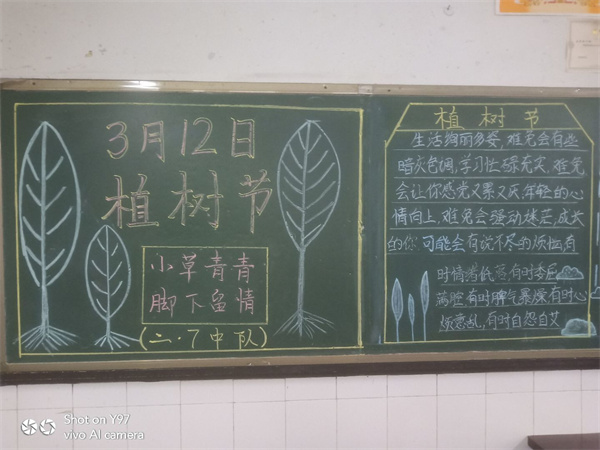 3月12日
植树节
小草青青
脚下留情
(二.7中队)
植树节
生活绚丽多姿,难免会有些
暗灰色调,学习忙碌充实,难免
会让你感觉又累又厌年轻的心
情向上,难免会强动迷茫,成长
的你可能会有说不尽的烦恼有
时情绪低落有时委屈
满腔有时脾气暴燥有时心
烦意乱,有时自怨自艾
Shot on Y97
vivo AI camera